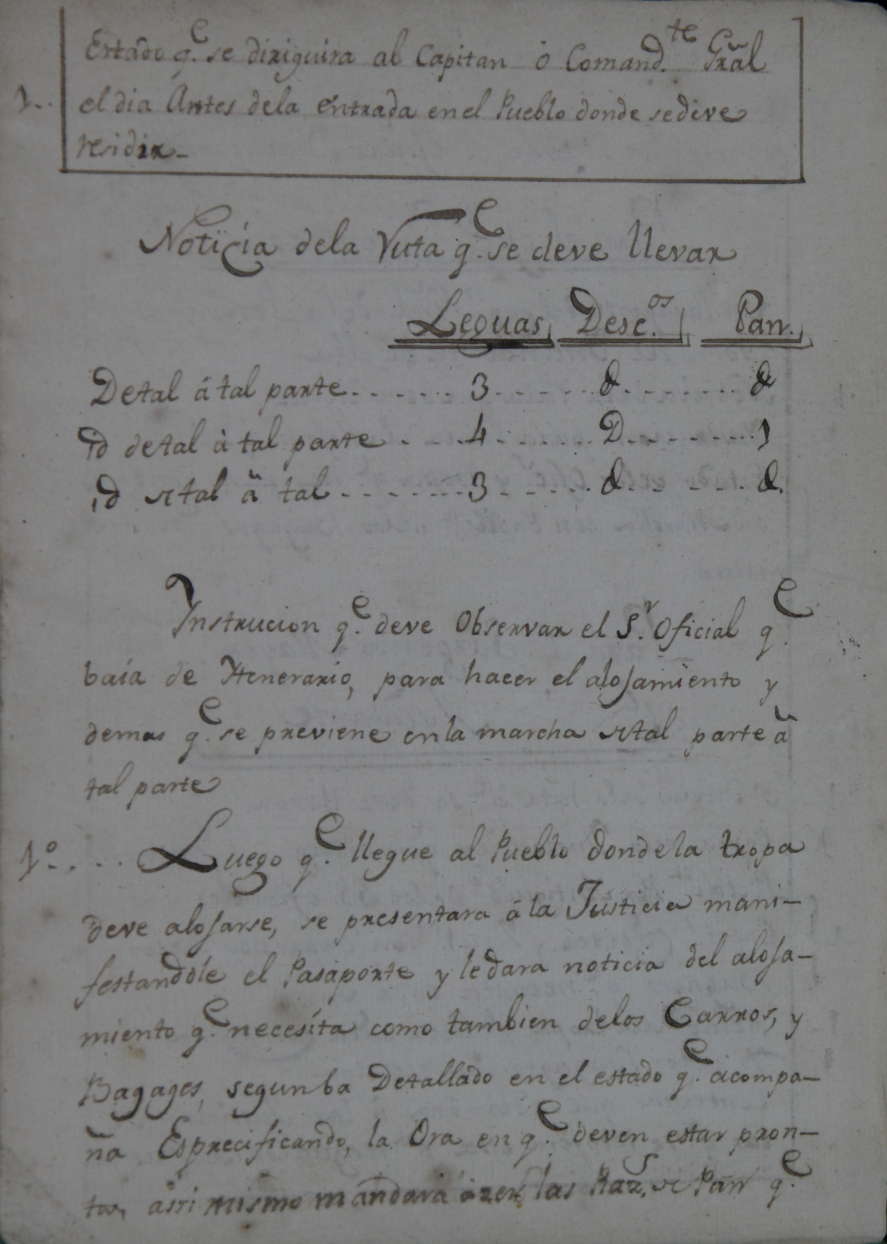 Estado q.e se diriguira al Capitan ó Comand.te Grãl
1.. el dia Antes dela entrada en el Pueblo donde se deve
residir_
Noticia dela Ruta q.e se deve llevar
Leguas, Desc.os Pan.
Detal á tal parte....... 3...... d....... d
Yd detal à tal parte.. 4..... D....... 1
id de tal a tal....... 3...... d....... d.
Instrucion q.e deve Observar el S.r Oficial q.e
baia de Ytenerario, para hacer el alojamiento y
demas q.e se previene en la marcha de tal parte a
tal parte
1º.... Luego q.e llegue al Pueblo donde la tropa
deve alojarse, se presentara á la Justicia mani-
festandole el Pasaporte y ledara noticia del aloja-
miento q.e necesita como tambien delos Carros, y
Bagages, segun ba Detallado en el estado q.e acompa-
ña Esprecificando, la Ora en q.e deven estar pron-
tos, asri mismo mandara azer las Raz.s de Pan q.e